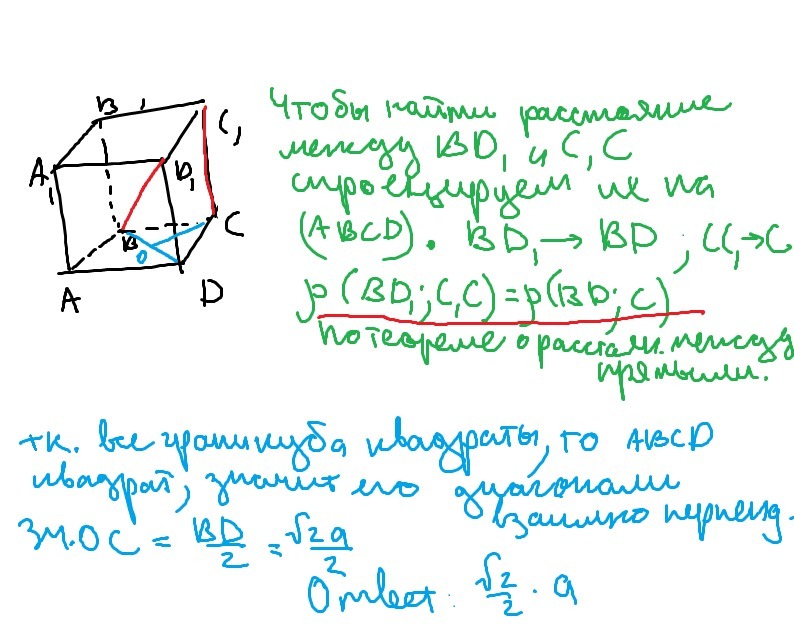 B₁
C₁
A₁
D₁
B
C
O
A
D
Чтобы найти расстояние
между BD₁ и C₁C
спроецируем их на
(ABCD). BD₁→BD, CC₁→C
ρ(BD₁;C₁C)=ρ(BD;C)
по теореме о расстоян. между
прямыми.
т.к. все грани куба квадраты, то ABCD
квадрат, значит его диагонали
взаимно перпенд.
зн. OC = BD/2 = √2a/2
Ответ: √2/2 · a